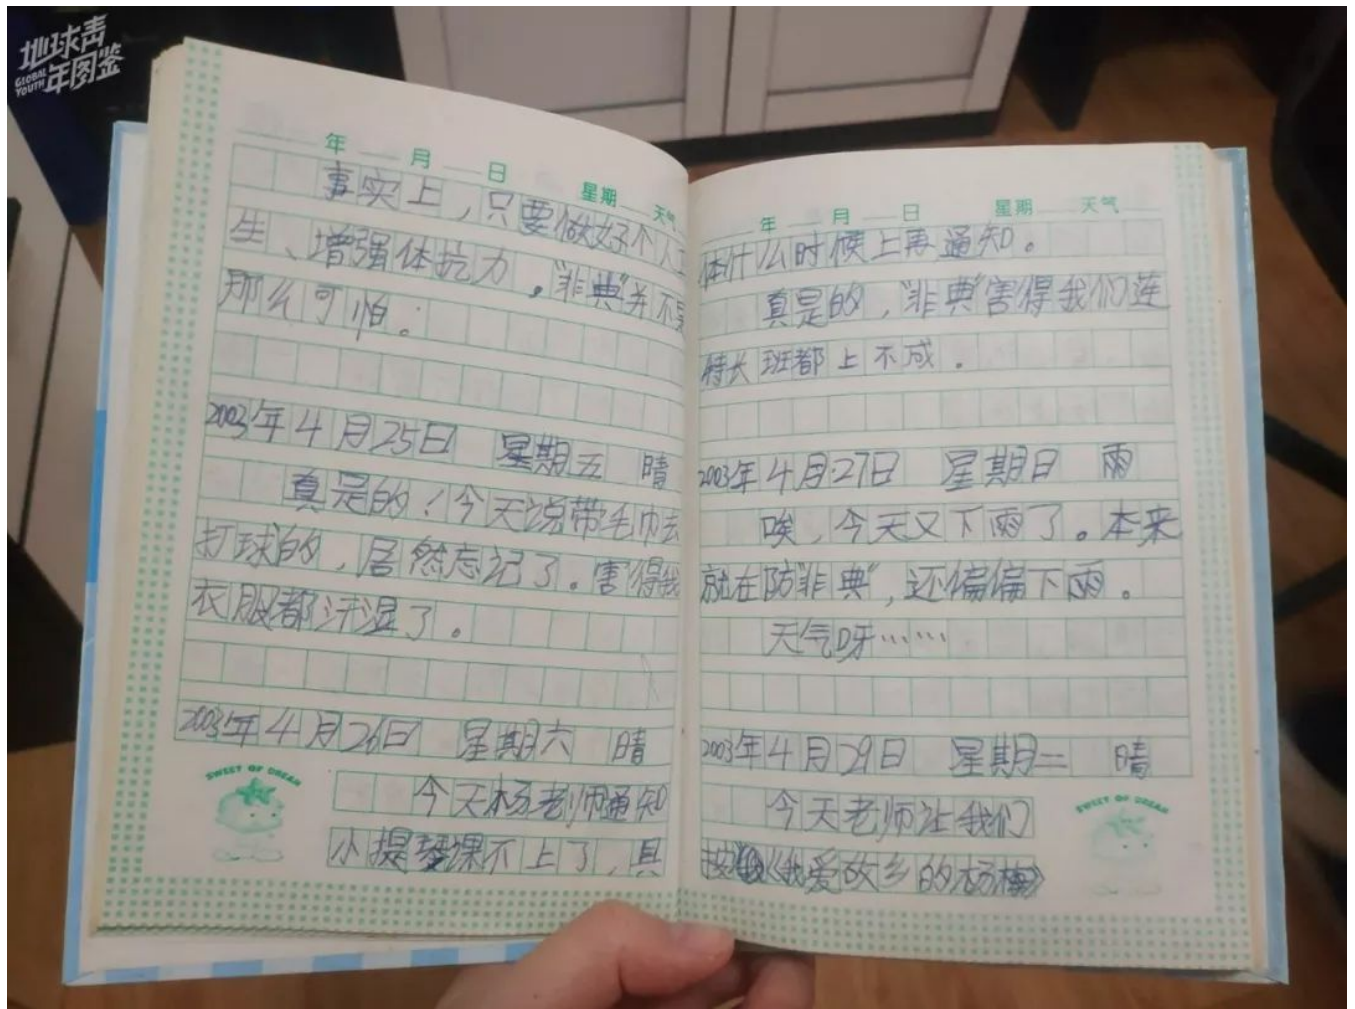 地球青
年图鉴
GLOBAL
YOUTH
年 月 日 星期 天气
事实上，只要做好个人卫
生、增强体抗力，“非典”并不是
那么可怕。
2003年4月25日 星期五 晴
真是的！今天说带毛巾去
打球的，居然忘记了。害得我
衣服都汗湿了。
2003年4月26日 星期六 晴
SWEET OF DREAM
今天杨老师通知
小提琴课不上了，具
年 月 日 星期 天气
体什么时候上再通知。
真是的，“非典”害得我们连
特长班都上不成。
2003年4月27日 星期日 雨
唉，今天又下雨了。本来
就在防“非典”，还偏偏下雨。
天气呀……
2003年4月29日 星期二 晴
今天老师让我们
按《我爱故乡的杨梅》
SWEET OF DREAM